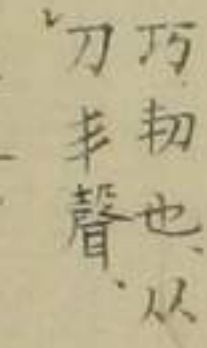 巧㓞也、从
刀丯聲、